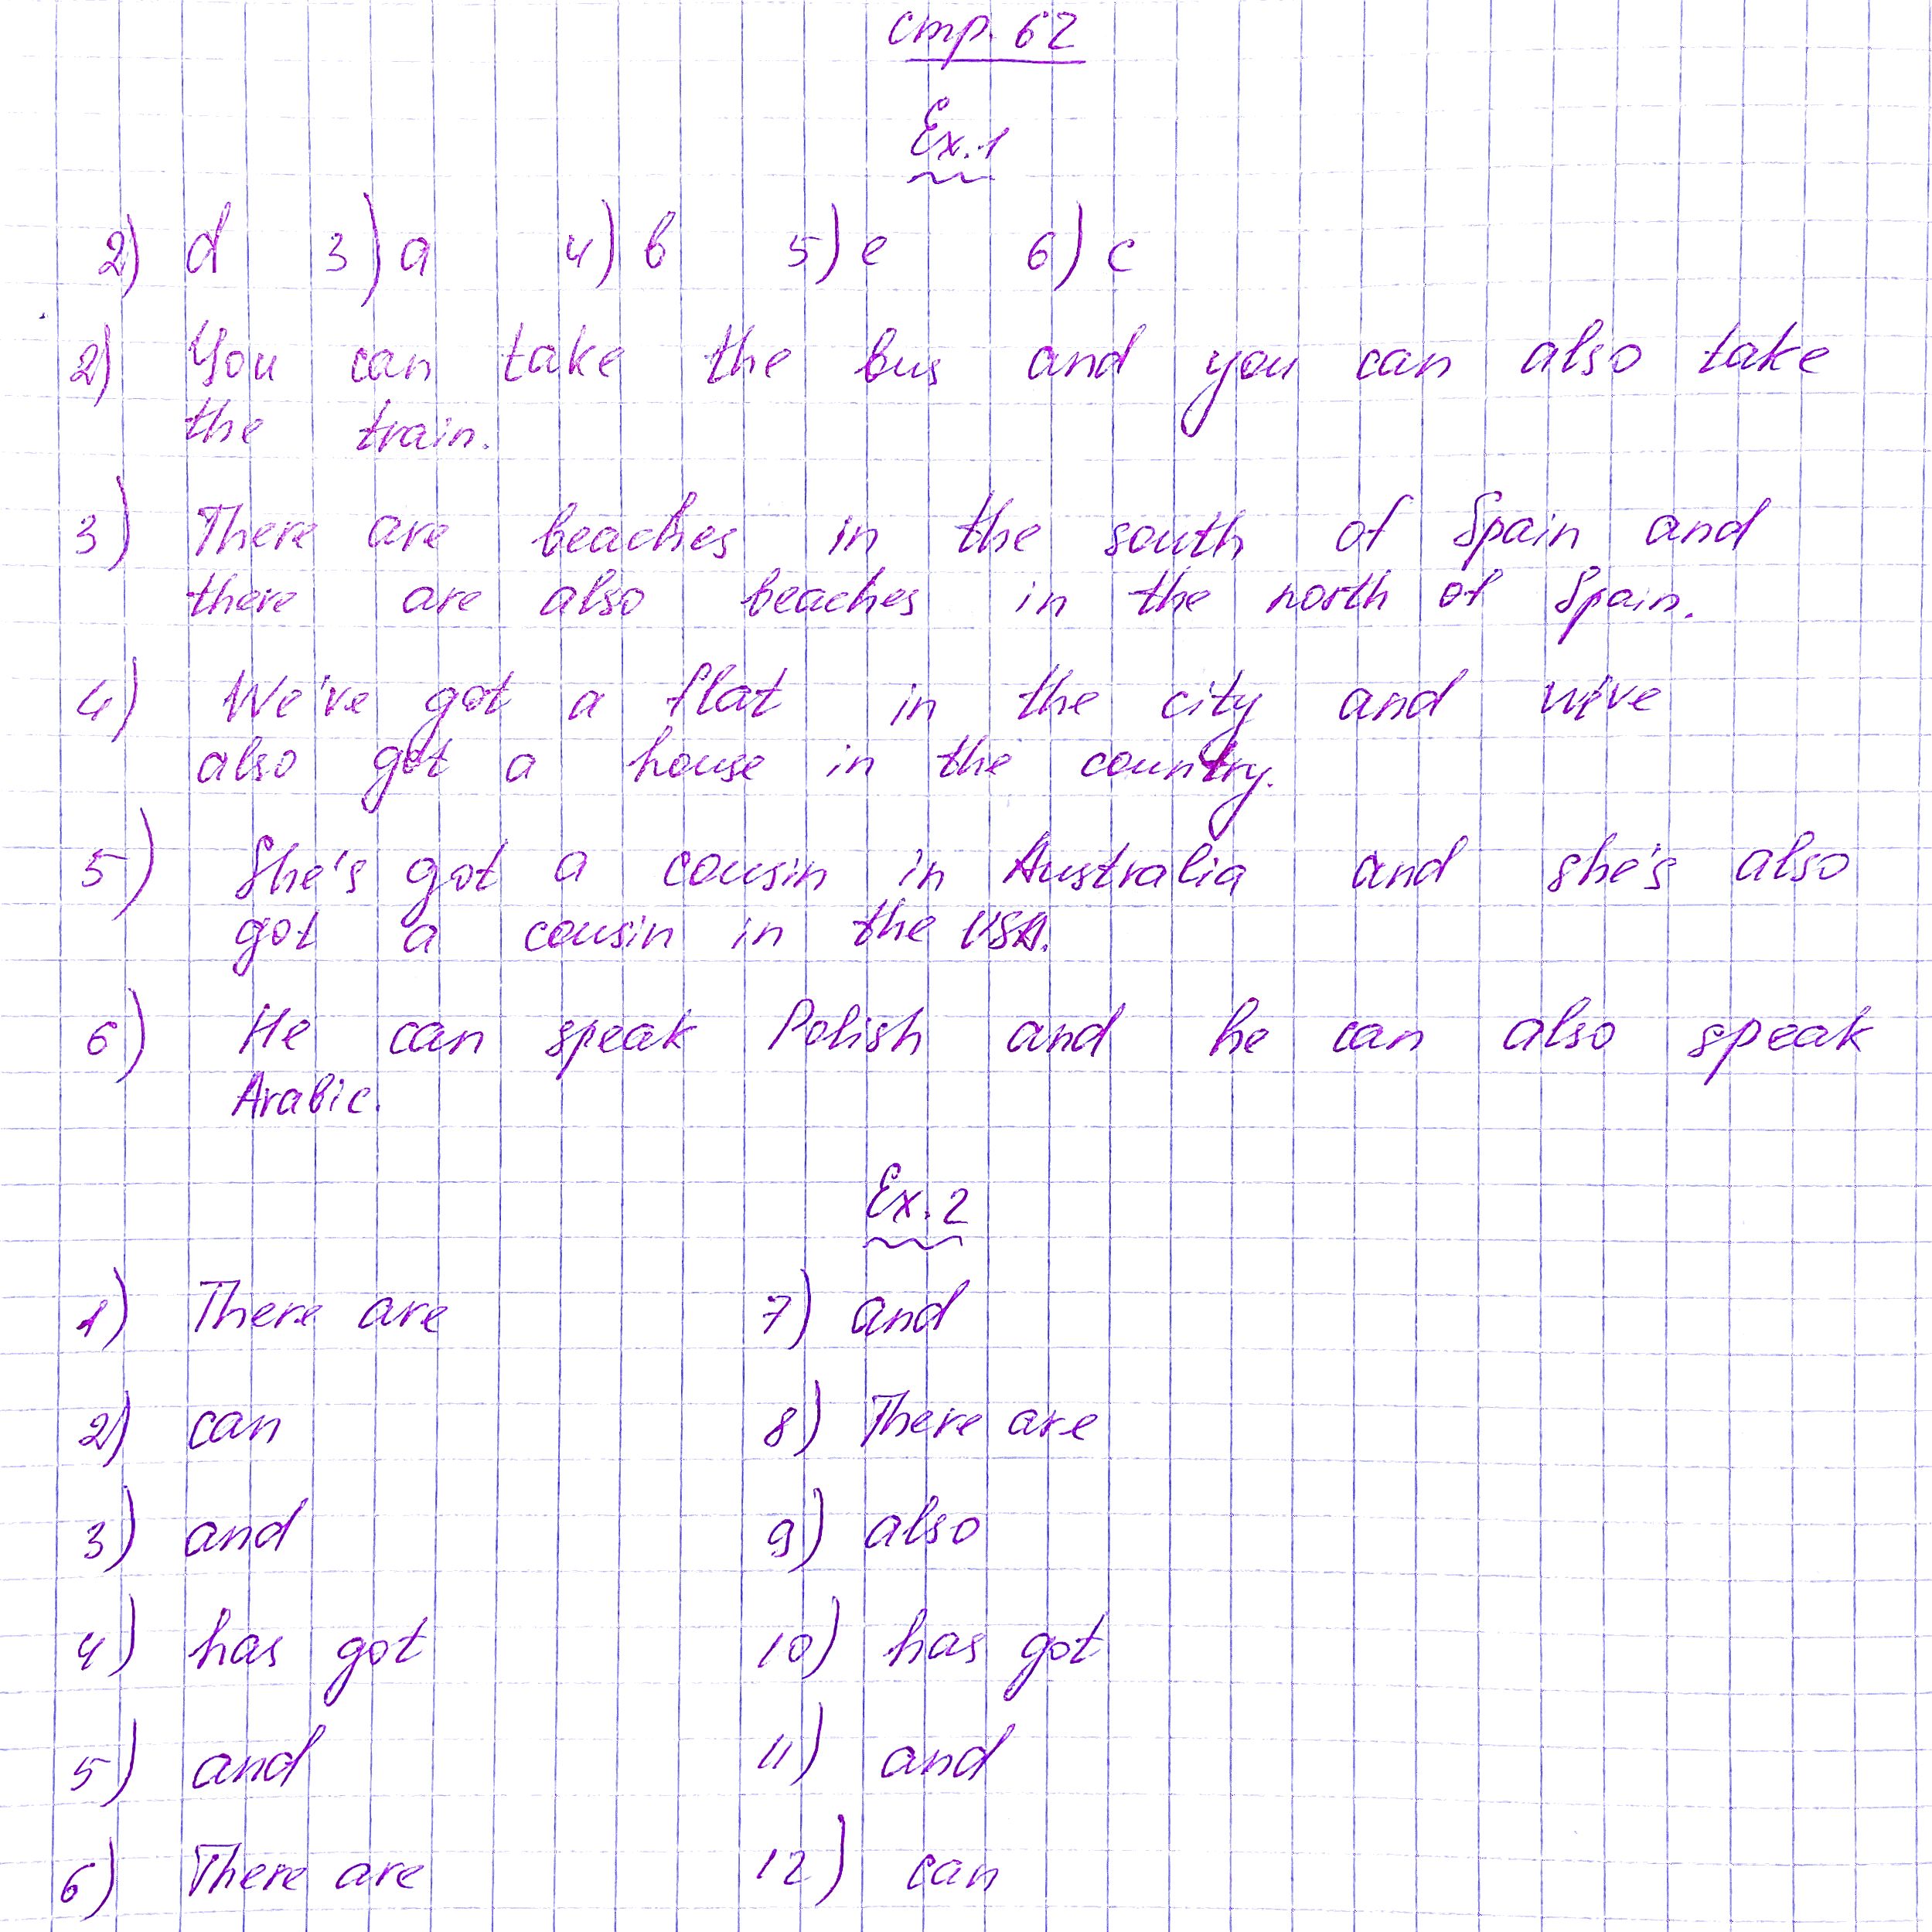 стр. 62
Ex. 1
2) d 3) a 4) b 5) e 6) c
2) You can take the bus and you can also take
the train.
3) There are beaches in the south of Spain and
there are also beaches in the north of Spain.
4) We've got a flat in the city and we've
also got a house in the country.
5) She's got a cousin in Australia and she's also
got a cousin in the USA.
6) He can speak Polish and he can also speak
Arabic.
Ex. 2
1) There are 7) and
2) can 8) There are
3) and 9) also
4) has got 10) has got
5) and 11) and
6) There are 12) can